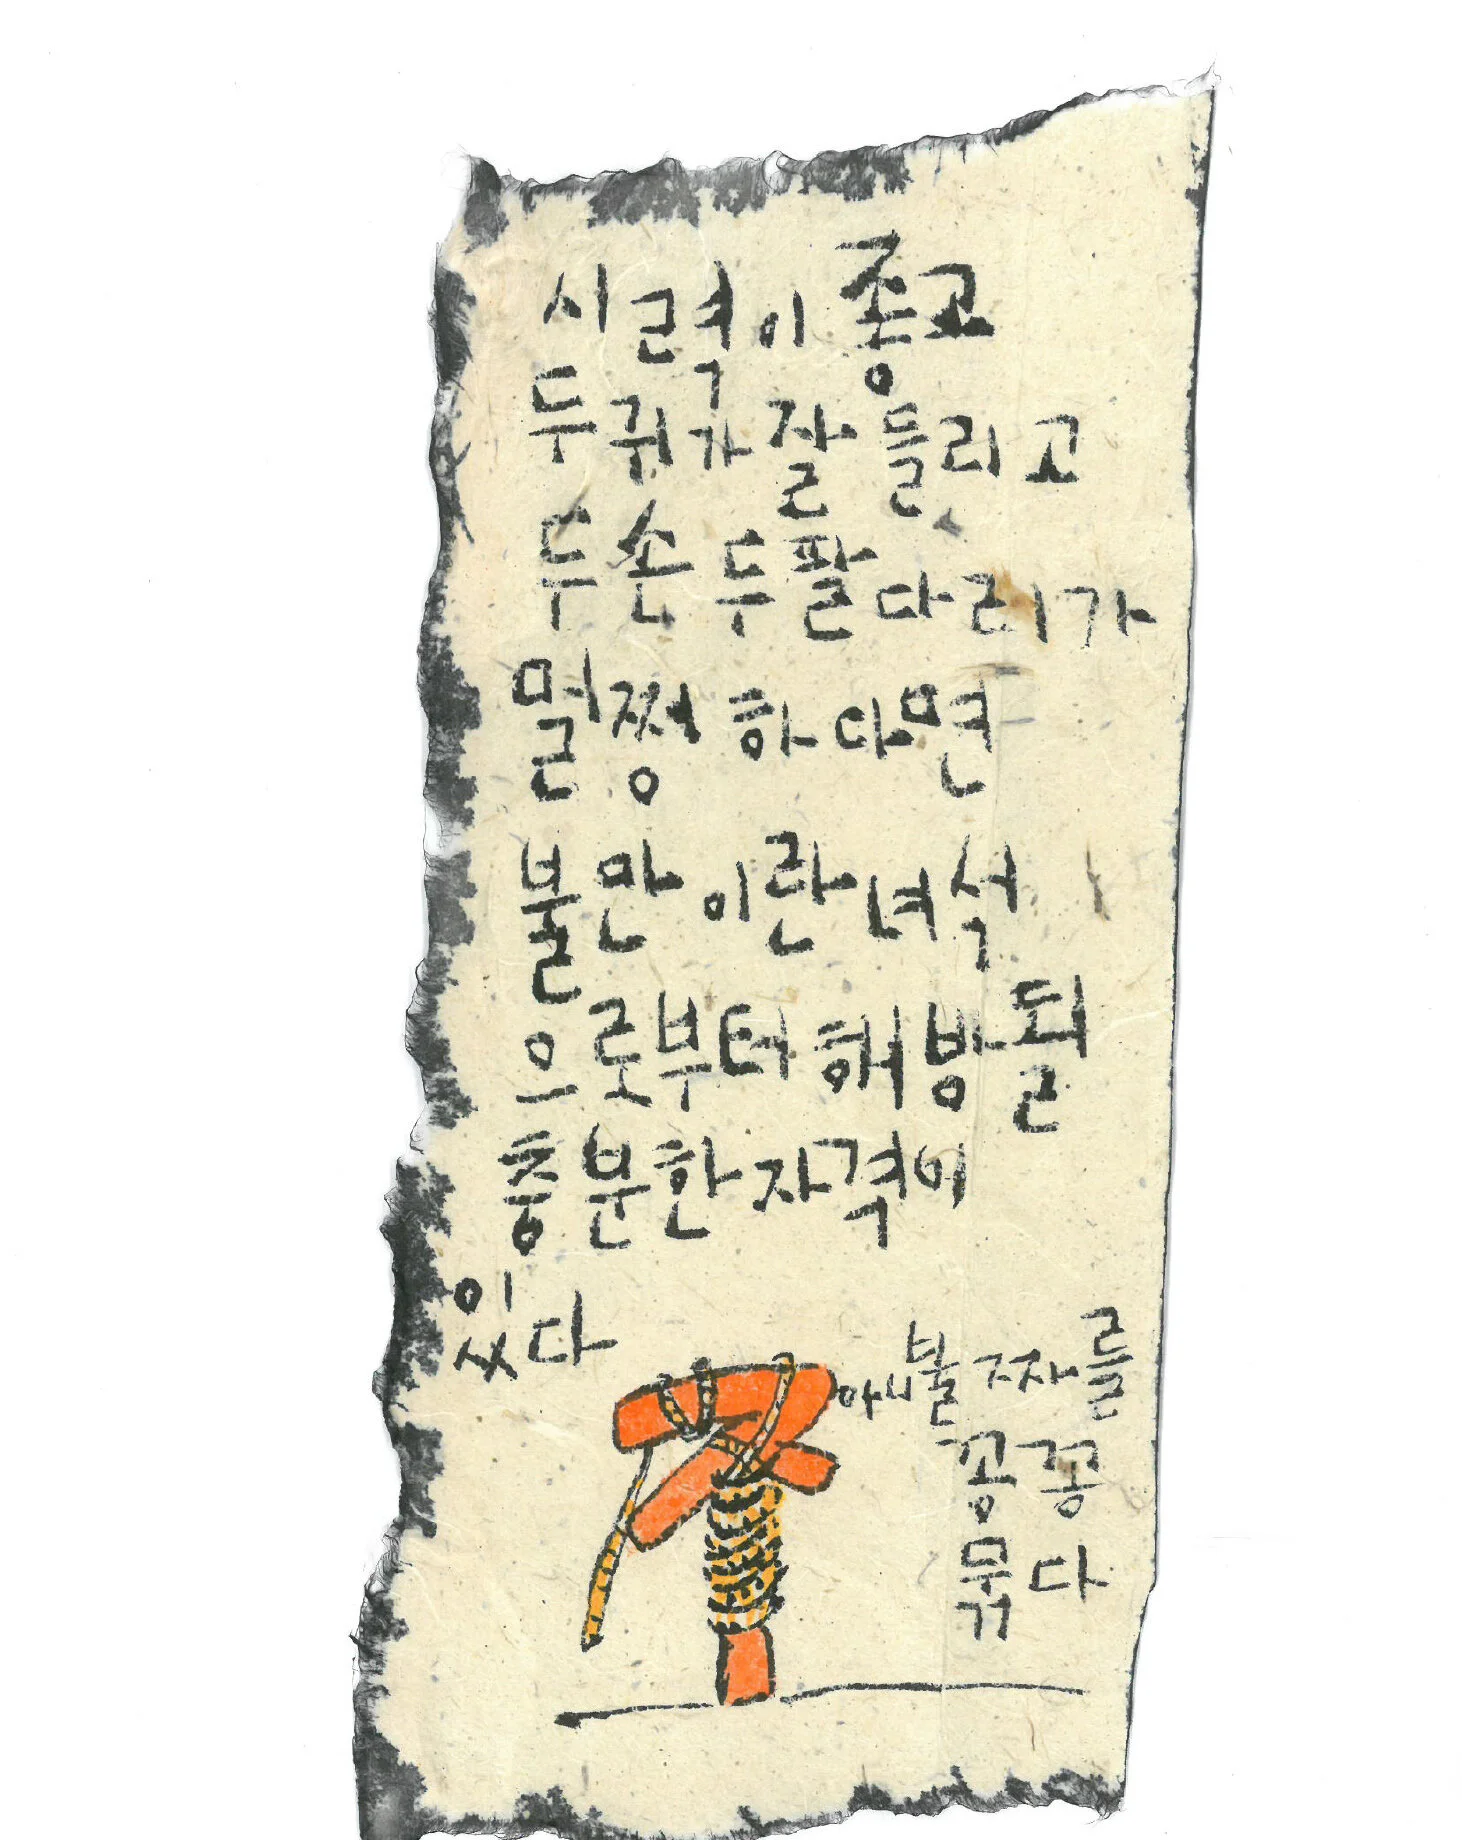 시력이 좋고
두 귀가 잘 들리고
두 손 두 팔다리가
멀쩡하다면
불만이란 녀석
으로부터 해방될
충분한 자격이
있다
아니 불짜를
꽁꽁
묶다